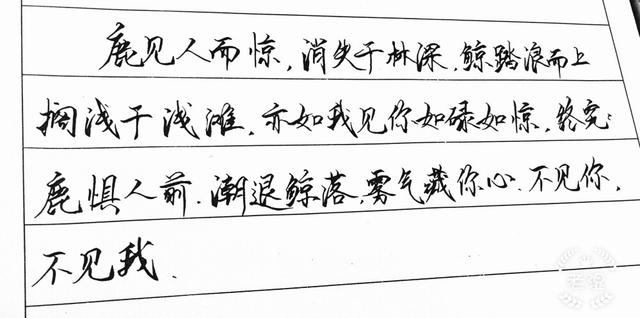 鹿见人而惊,消失于林深.鲸踏浪而上
搁浅于浅滩.亦如我见你如碌如惊,终究:
鹿惧人前.潮退鲸落,雾气藏你心.不见你,
不见我.